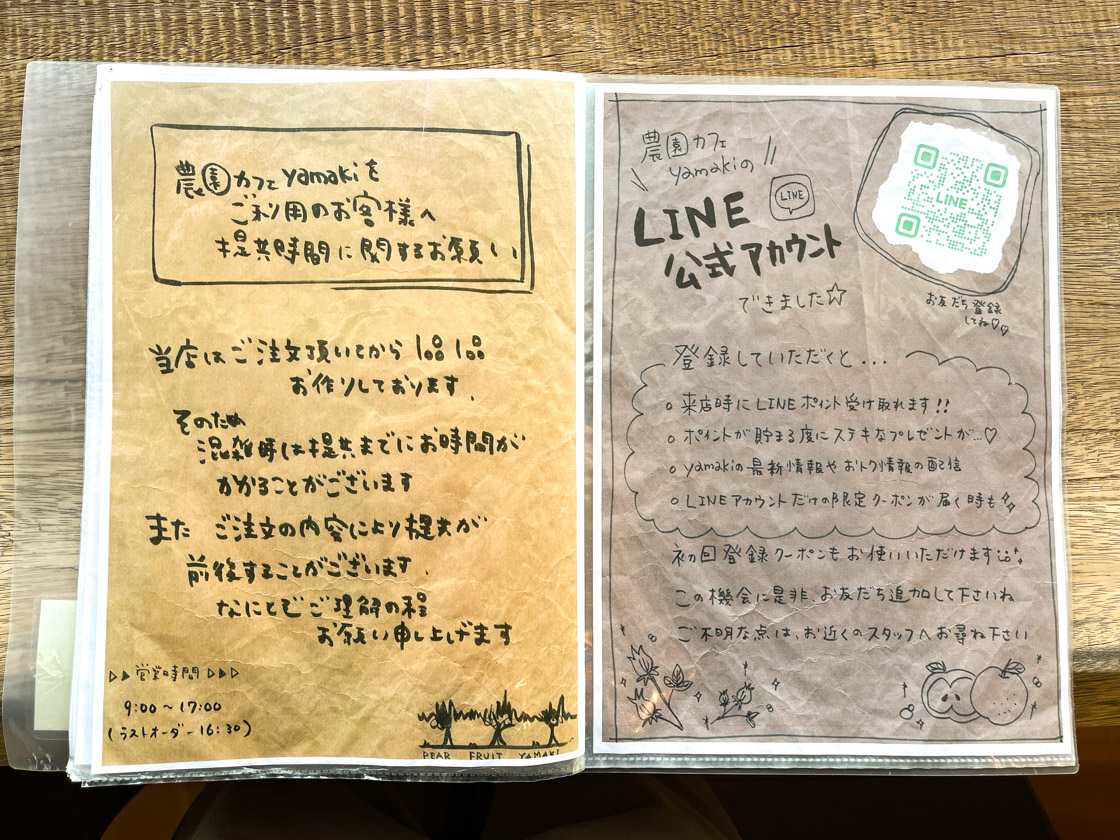 農園カフェ yamakiを
ご利用のお客様へ
提供時間に関するお願い
当店はご注文頂いてから1品1品
お作りしております。
そのため
混雑時は提供までにお時間が
かかることがございます
また ご注文の内容により提供が
前後することがございます。
なにとぞご理解の程
お願い申し上げます
▷▷営業時間▷▷▷
9:00〜17:00
(ラストオーダー16:30)
PEAR FRUIT YAMAKI
農園カフェ
yamakiの
LINE
公式アカウント
LINE
できました☆
LINE
お友だち登録
してね♡♡
登録していただくと...
○ 来店時にLINEポイント受け取れます!!
○ ポイントが貯まる度にステキなプレゼントが...♡
○ yamakiの最新情報やおトク情報の配信
○ LINEアカウントだけの限定クーポンが届く時も
初回登録クーポンもお使いいただけます
この機会に是非、お友だち追加して下さいね
ご不明な点は、お近くのスタッフへお尋ね下さい